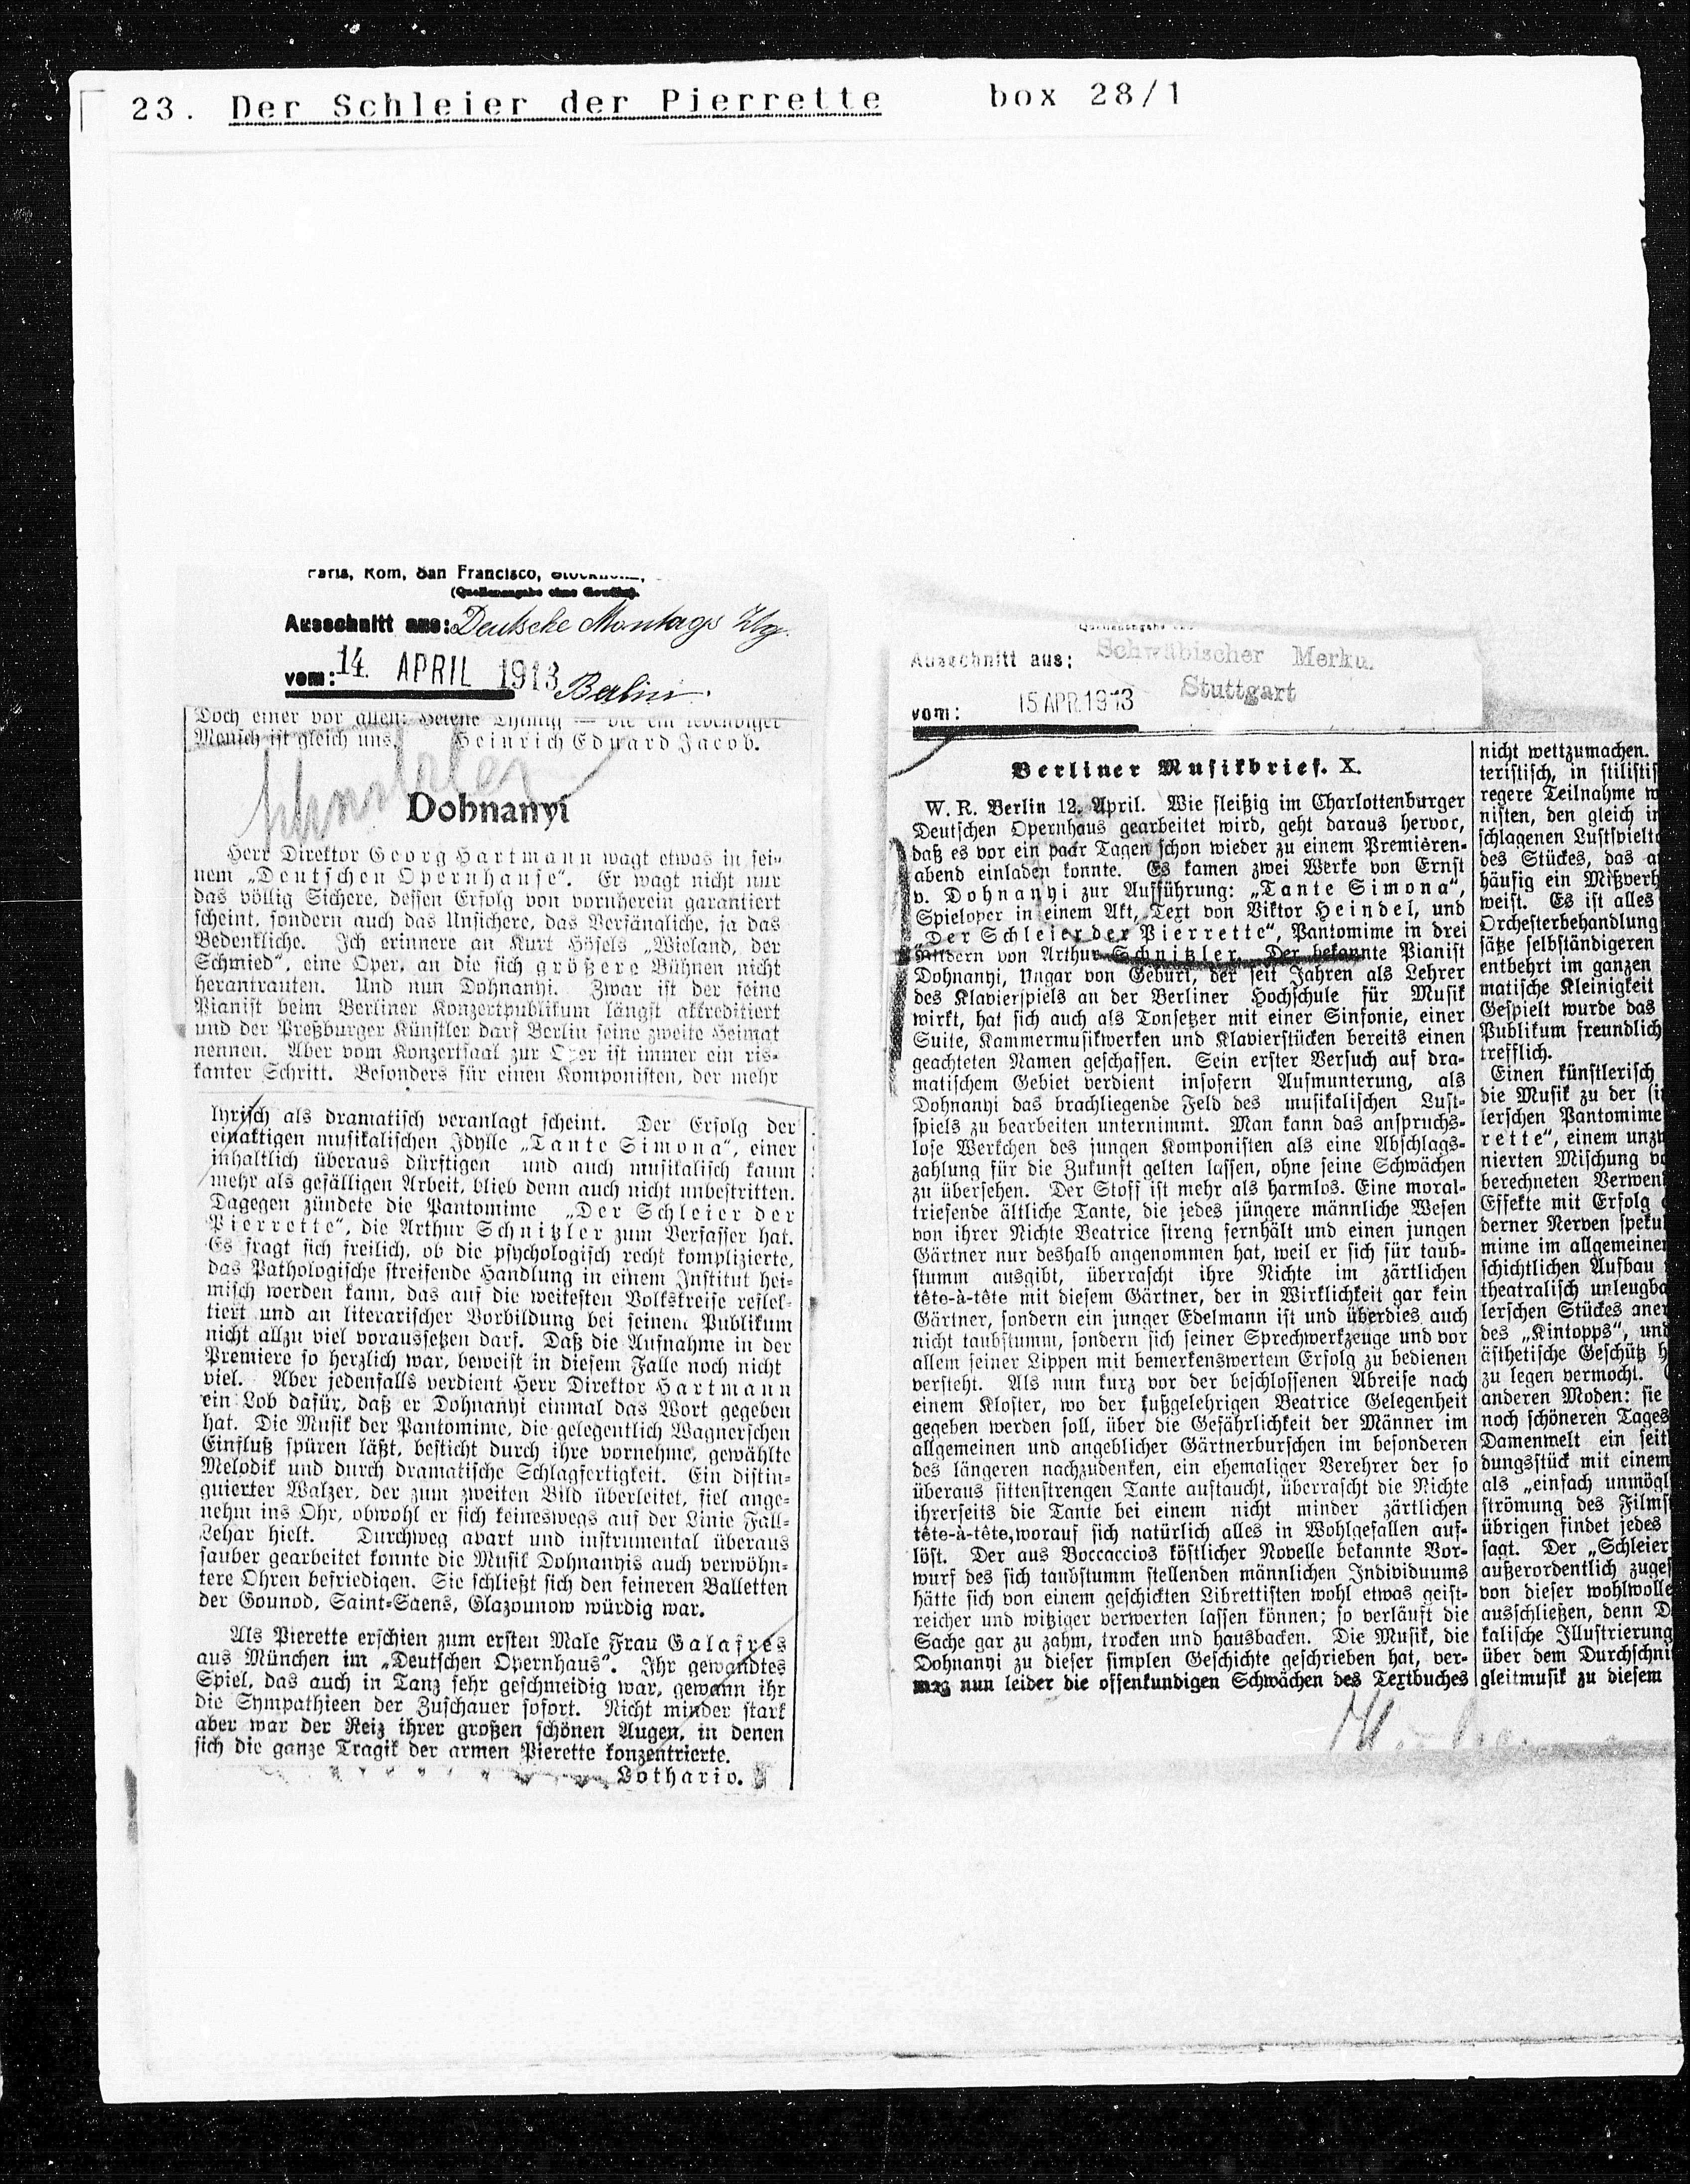 23. Der Schleier der Pierrette box 28/1
Paris, Rom, San Francisco,
(Quellenangabe ohne Gewähr).
Ausschnitt aus: Deutsche Montags Ztg.
vom: 14. APRIL 1913 Berlin.
Doch einer vor allen: Helene Thimig — die ein lebendiger
Mensch ist gleich uns. Heinrich Eduard Jacob.
Schnitzler
Dohnanyi
Herr Direktor Georg Hartmann wagt etwas in sei-
nem „Deutschen Opernhause“. Er wagt nicht nur
das völlig Sichere, dessen Erfolg von vornherein garantiert
scheint, sondern auch das Unsichere, das Verfängliche, ja das
Bedenkliche. Ich erinnere an Kurt Hösels „Wieland, der
Schmied“, eine Oper, an die sich größere Bühnen nicht
herantrauten. Und nun Dohnanyi. Zwar ist der feine
Pianist beim Berliner Konzertpublikum längst akkreditiert
und der Preßburger Künstler darf Berlin seine zweite Heimat
nennen. Aber vom Konzertsaal zur Oper ist immer ein ris-
kanter Schritt. Besonders für einen Komponisten, der mehr
lyrisch als dramatisch veranlagt scheint. Der Erfolg der
einaktigen musikalischen Idylle „Tante Simona“, einer
inhaltlich überaus dürftigen und auch musikalisch kaum
mehr als gefälligen Arbeit, blieb denn auch nicht unbestritten.
Dagegen zündete die Pantomime „Der Schleier der
Pierrette“, die Arthur Schnitzler zum Verfasser hat.
Es fragt sich freilich, ob die psychologisch recht komplizierte,
das Pathologische streifende Handlung in einem Institut hei-
misch werden kann, das auf die weitesten Volkskreise reflek-
tiert und an literarischer Vorbildung bei seinem Publikum
nicht allzu viel voraussetzen darf. Daß die Aufnahme in der
Premiere so herzlich war, beweist in diesem Falle noch nicht
viel. Aber jedenfalls verdient Herr Direktor Hartmann
ein Lob dafür, daß er Dohnanyi einmal das Wort gegeben
hat. Die Musik der Pantomime, die gelegentlich Wagnerschen
Einfluß spüren läßt, besticht durch ihre vornehme, gewählte
Melodik und durch dramatische Schlagfertigkeit. Ein distin-
guierter Walzer, der zum zweiten Bild überleitet, fiel ange-
nehm ins Ohr, obwohl er sich keineswegs auf der Linie Fall-
Lehar hielt. Durchweg apart und instrumental überaus
sauber gearbeitet konnte die Musik Dohnanyis auch verwöhn-
tere Ohren befriedigen. Sie schließt sich den feineren Balletten
der Gounod, Saint-Saens, Glazounow würdig war.
Als Pierette erschien zum ersten Male Frau Galafres
aus München im „Deutschen Opernhaus“. Ihr gewandtes
Spiel, das auch in Tanz sehr geschmeidig war, gewann ihr
die Sympathieen der Zuschauer sofort. Nicht minder stark
aber war der Reiz ihrer großen schönen Augen, in denen
sich die ganze Tragik der armen Pierette konzentrierte.
Lothario.
Ausschnitt aus: Schwäbischer Merku.
Stuttgart
vom: 15 APR. 1913
Berliner Musikbrief. X.
W. R. Berlin 12. April. Wie fleißig im Charlottenburger
Deutschen Opernhaus gearbeitet wird, geht daraus hervor,
daß es vor ein paar Tagen schon wieder zu einem Premièren-
abend einladen konnte. Es kamen zwei Werke von Ernst
v. Dohnanyi zur Aufführung: „Tante Simona“,
Spieloper in einem Akt, Text von Viktor Heindel, und
„Der Schleier der Pierrette“, Pantomime in drei
Bildern von Arthur Schnitzler. Der bekannte Pianist
Dohnanyi, Ungar von Geburt, der seit Jahren als Lehrer
des Klavierspiels an der Berliner Hochschule für Musik
wirkt, hat sich auch als Tonsetzer mit einer Sinfonie, einer
Suite, Kammermusikwerken und Klavierstücken bereits einen
geachteten Namen geschaffen. Sein erster Versuch auf dra-
matischem Gebiet verdient insofern Aufmunterung, als
Dohnanyi das brachliegende Feld des musikalischen Lust-
spiels zu bearbeiten unternimmt. Man kann das anspruchs-
lose Werkchen des jungen Komponisten als eine Abschlags-
zahlung für die Zukunft gelten lassen, ohne seine Schwächen
zu übersehen. Der Stoff ist mehr als harmlos. Eine moral-
triefende ältliche Tante, die jedes jüngere männliche Wesen
von ihrer Nichte Beatrice streng fernhält und einen jungen
Gärtner nur deshalb angenommen hat, weil er sich für taub-
stumm ausgibt, überrascht ihre Nichte im zärtlichen
tête-à-tête mit diesem Gärtner, der in Wirklichkeit gar kein
Gärtner, sondern ein junger Edelmann ist und überdies auch
nicht taubstumm, sondern sich seiner Sprechwerkzeuge und vor
allem seiner Lippen mit bemerkenswertem Erfolg zu bedienen
versteht. Als nun kurz vor der beschlossenen Abreise nach
einem Kloster, wo der kußgelehrigen Beatrice Gelegenheit
gegeben werden soll, über die Gefährlichkeit der Männer im
allgemeinen und angeblicher Gärtnerburschen im besonderen
des längeren nachzudenken, ein ehemaliger Verehrer der so
überaus sittenstrengen Tante auftaucht, überrascht die Nichte
ihrerseits die Tante bei einem nicht minder zärtlichen
tête-à-tête, worauf sich natürlich alles in Wohlgefallen auf-
löst. Der aus Boccaccios köstlicher Novelle bekannte Vor-
wurf des sich taubstumm stellenden männlichen Individuums
hätte sich von einem geschickten Librettisten wohl etwas geist-
reicher und witziger verwerten lassen können; so verläuft die
Sache gar zu zahm, trocken und hausbacken. Die Musik, die
Dohnanyi zu dieser simplen Geschichte geschrieben hat, ver-
mag nun leider die offenkundigen Schwächen des Textbuches
nicht wettzumachen.
teristisch, in stilistis
regere Teilnahme w
nisten, den gleich in
schlagenen Lustspielto
des Stückes, das a
häufig ein Mißverh
weist. Es ist alles
Orchesterbehandlung
sätze selbständigeren
entbehrt im ganzen
matische Kleinigkeit
Gespielt wurde das
Publikum freundlich
trefflich.
Einen künstlerisch
die Musik zu der (i
lerschen Pantomime
rette“, einem unzw
nierten Mischung vo
berechneten Verwen
Effekte mit Erfolg
derner Nerven speku
mime im allgemeinen
schichtlichen Aufbau
theatralisch unleugba
lerschen Stückes aner
des „Kintopps“, und
ästhetische Geschütz h
zu legen vermocht.
anderen Moden: sie
noch schöneren Tages
Damenwelt ein seit
dungsstück mit einem
als „einfach unmögl
strömung des Films
übrigen findet jedes
sagt. Der „Schleier
außerordentlich zuges
von dieser wohlwolle
ausschließen, denn D
kalische Illustrierung
über dem Durchschni
gleitmusik zu diesem